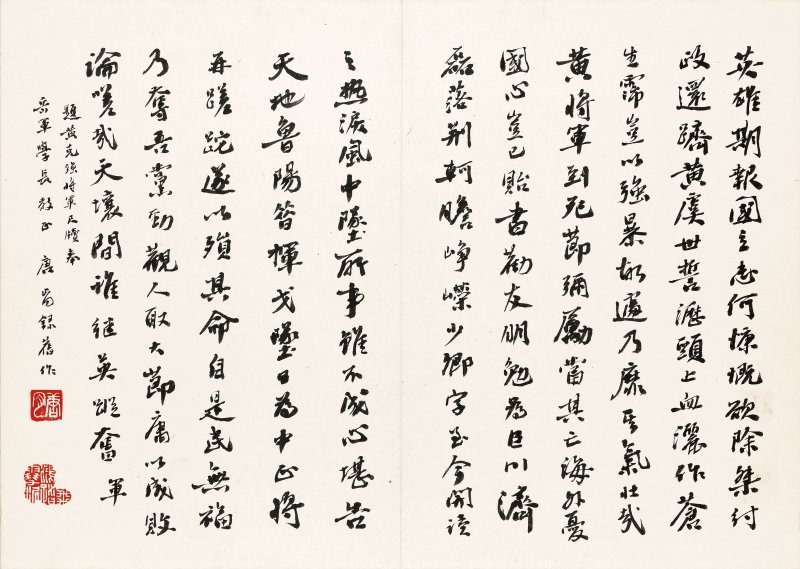 英雄期報國立志何慷慨欲除桀紂
政還躋黃虞世誓瀝頭上血灑作蒼
生霈豈以強暴故遽乃靡其氣壯哉
黃將軍到死節彌勵當其亡海外憂
國心豈已貽書勸友朋勉為巨川濟
磊落荊軻膽崢嶸少卿字至今開讀
之熱淚風中墜所事雖不成心堪告
天地魯陽昔揮戈墜日為中止將
再蹉跎遂以殞其命自是民無福
乃奪吾黨勁觀人取大節庸以成敗
論嗟哉天壤間誰繼英蹤奮 軍
題黃克強將軍尺牘奉
岳軍學長教正 唐 錄舊作